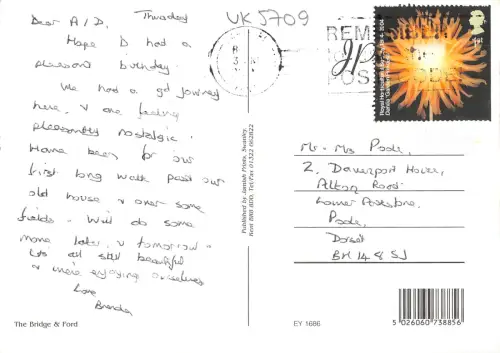 Dear A/D. Thursday
Hope D had a
pleasant birthday.
We had a gd journey
here, & are feeling
pleasantly nostalgic.
Have been for our
first long walk past our
old house & over some
fields. Will do some
more later, & tomorrow.
It's all still beautiful
& we're enjoying ourselves
Love
Brenda
The Bridge & Ford
UK 5709
Published by Jarrold Prints, Swanley,
Kent BR8 8DD. Tel/Fax 01322 662822
REM
JP
POS CODE
1st
Royal Horticultural Society 1804-2004
Mr. Mrs Poole,
2, Davenport House,
Alton Road
Lower Parkstone,
Poole,
Dorset
BH14 8SJ
EY 1686
5 026060 738856